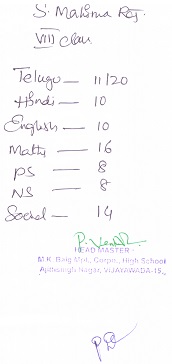 S. Mahima Raj.
VIII Class
Telugu — 11/20
Hindi — 10
English — 10
Maths — 16
PS — 8
NS — 8
Social — 14
HEAD MASTER
M.K. Baig Mpl., Corpn., High School
Ajithsingh Nagar, VIJAYAWADA-15.